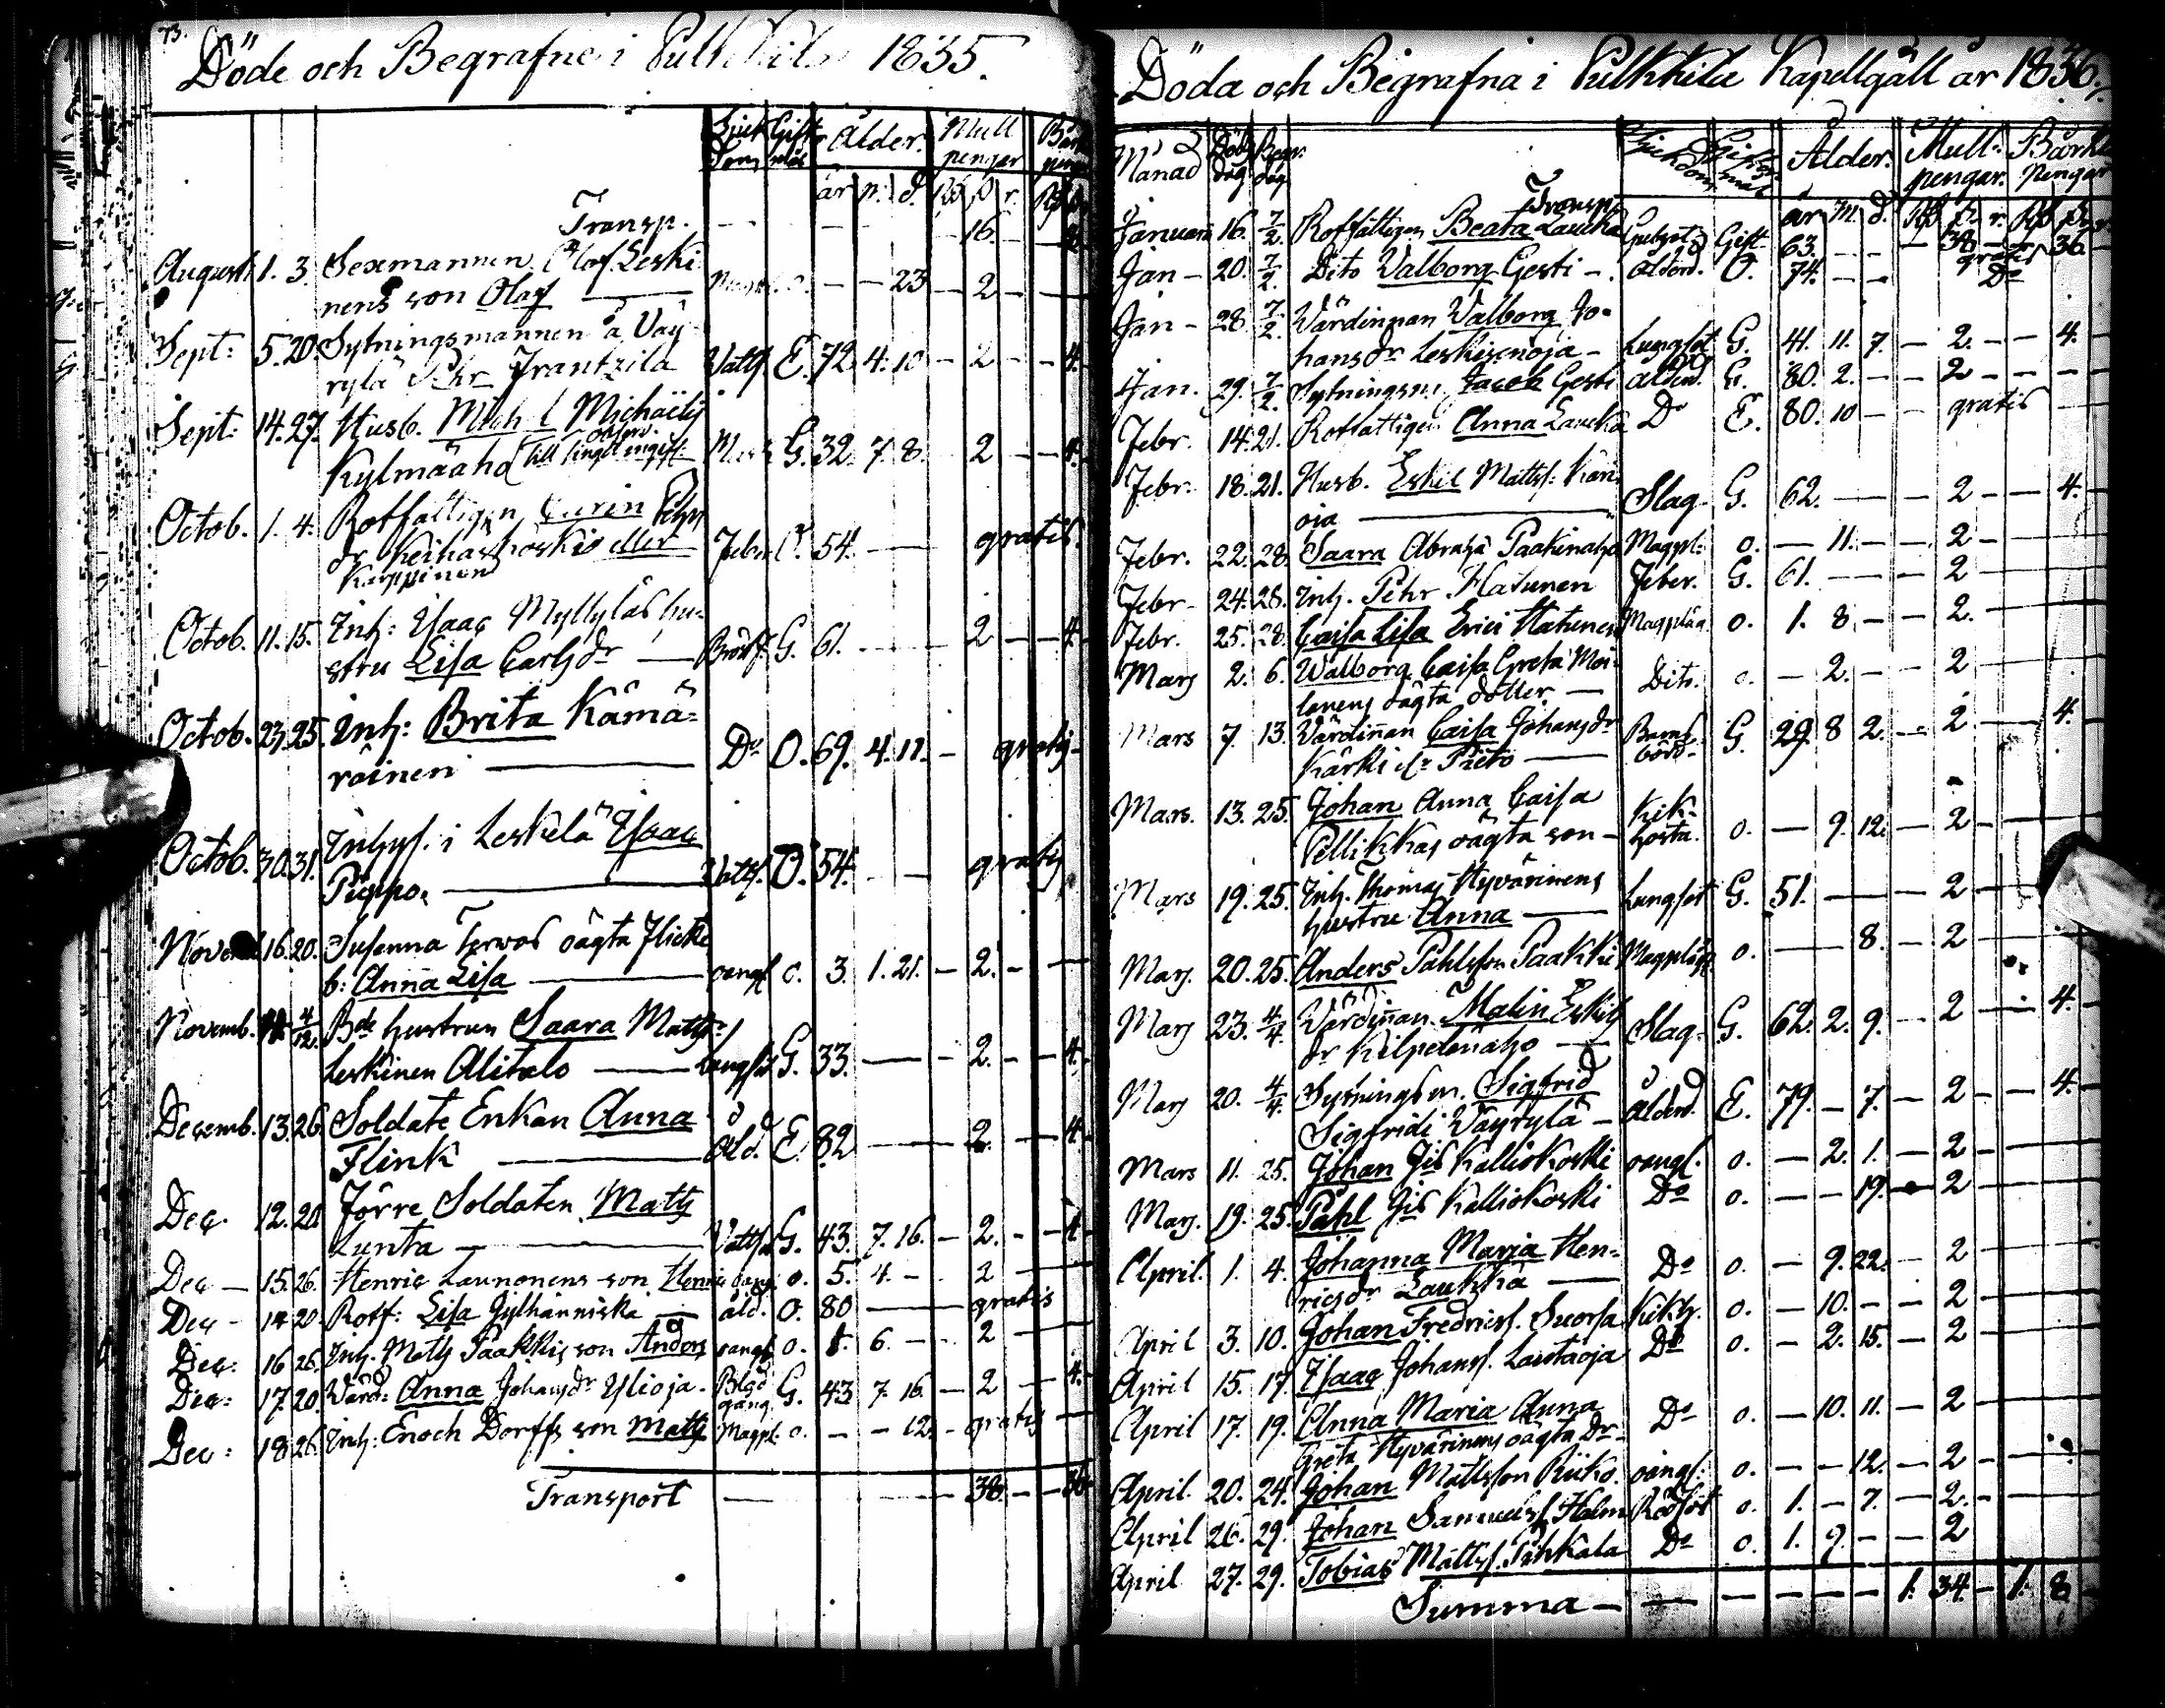 73.
Döde och Begrafne i Pulkkila 1835.
Sjuk dom Gift mål Ålder. Mull pengar Bår pengar
år m. d. Rb. r.
Transp. - - - 16. -
August 1. 3. Sexmannen Olof Leski
nens son Olof — o. - - 23 - 2 - -
Sept: 5. 20. Sytningsmannen å Väy-
rylä Pehr Frantzila Vatts. E. 72 4. 10 - 2 - - 4.
Sept: 14. 27. Husb. Mich l Michaëls
Kylmäaho G. 32. 7. 8. - 2 - - 4.
Octob. 1. 4. Rotfattigen Carin Pehrs
dr Keihäskoski eller Feber O. 54. - - gratis.
Karppinen
Octob. 11. 15. Inh: Isaac Myllyläs hu-
stru Lisa Carlsdr — Bröstf. G. 61. - - - 2 - - 4.
Octob. 23. 25. Inh: Brita Kämä=
räinen — Do O. 69. 4. 11. - gratis -
Octob. 30. 31. Inhys. i Leskelä Isaac
Piippo. —Ватts. O. 54. - - gratis
Novemb 16. 20. Susanna oägta flicka
b: Anna Lisa — oangf. o. 3. 1. 21. - 2. - -
Novemb. 4/12. Bde hustrun Saara Matts
Leskinen Alitalo — Lungsot G. 33. - - - 2. - - 4.
Decemb. 13. 26. Soldate Enkan Anna
Flink — Åld. E. 82 - - - 2. - - 4.
Dec. 12. 20 Förre Soldaten Matts
Lunta — Vatts. G. 43. 7. 16. - 2. - - 4.
Dec - 15. 26. Henric Launonens son Henric oang. o. 5. 4. - 2 -
Dec - 14 20 Rotf: Lisa Jylhänniska — åld. O. 80 - gratis
Dec: 16 26. Inh. Matts Paakkis son Anders oangf. o. 1. 6. - - 2 -
Dec: 17. 20. Värd: Anna Johansdr Ylioja. Blod gång. G. 43 7. 16. - 2 - 4.
Dec: 18. 26. Inh: Enoch Dorffs son Matts Magpl. o. - - 12. - gratis
Transport — - - - - 38. - - 36
Döda och Begrafna i Pulkkila Kapellgäll år 1836.
Månad Döds dag Begr. dag Sjukdom Gifter mål Ålder. Mull: pengar. Bårkl. pengar
Transp. år m. d. Rb. r.
Januari 16. 7/2. Rotfattigen Beata Laucka Gift 63. - - - 38 - 36.
gratis
Jan - 20. 7/2. Dito Valborg Gesti -. ålderd. O. 74. - - Do
Jan - 28. 7/2. Värdinnan Valborg Jo=
hansdr Leskisenoja - Lungsot G. 41. 11. 7. - 2. - - 4.
Jan. 29. 7/2. Sytningsm. Jacob Gesti ålderd. G. 80. 2. - - 2 - - -
Febr. 14. 21. Rotfattigen Anna Laucka Do E. 80. 10 - - gratis
Febr. 18. 21. Husb. Eskil Matts: Kärn
oja — Slag G. 62. - - - 2 - - 4.
Febr. 22. 28. Saara Abrah. Paakinaho Magpl: o. - 11. - - 2 -
Febr - 24. 28. Inh. Pehr Hatunen Feber. G. 61. - - - 2
Febr. 25. 28. Caisa Lisa Erici Hatunen Magplåg. o. 1. 8. - - 2. -
Mars 2. 6. Walborg Caisa Greta Moi-
lanens oägta dotter — Dito. o. - 2. - - 2
Mars 7. 13. Värdinnan Caisa Johansdr
Kärki elr Pieto — Barns börd. G. 29. 8 2. - 2 - 4.
Mars. 13. 25. Johan Anna Caisa
Pellikkas oägta son - Kik-hosta. o. - 9. 12. - 2 -
Mars 19. 25. Inh. Thomas Hyvärinens
hustru Anna — Lungsot G. 51. - - - 2 -
Mars. 20. 25. Anders Påhlsson Paakki Magplåg o. - - 8. - 2 -
Mars 23. 4/4. Värdinnan Malin Eskils
dr Kilpelänaho — Slag. G. 62. 2. 9. - 2 - 4.
Mars 20. 4/4. Sytningsm. Sigfrid
Sigfridi Väyrylä - ålderd. E. 79. - 7. - 2 - - 4.
Mars 11. 25. Johan Jis Kalliokoski oangf. o. - 2. 1. - 2 -
Mars. 19. 25. Påhl Jis Kalliokoski Do o. - - 19. - 2
April. 1. 4. Johanna Maria Hen-
ricsdr Laukka — Do o. - 9. 22. - 2 -
April 3. 10. Johan Fredricss. Suorsa Kikh. o. - 10. - - 2
April 15. 17. Isaac Johans. Lautaoja Do o. - 2. 15. - 2 -
April 17. 19. Anna Maria Anna
Greta Hyvärinens oägta Dr - Do o. - 10. 11. - 2 -
April. 20. 24. Johan Mattsson Riiko. oangf: o. - - 12. - 2 -
April 26. 29. Johan Samuelss. Halm Rödsot o. 1. - 7. - 2. -
April 27. 29. Tobias Mattss. Pihkala Do o. 1. 9. - - 2
Summa - - - - - - 1. 34. - 1. 8